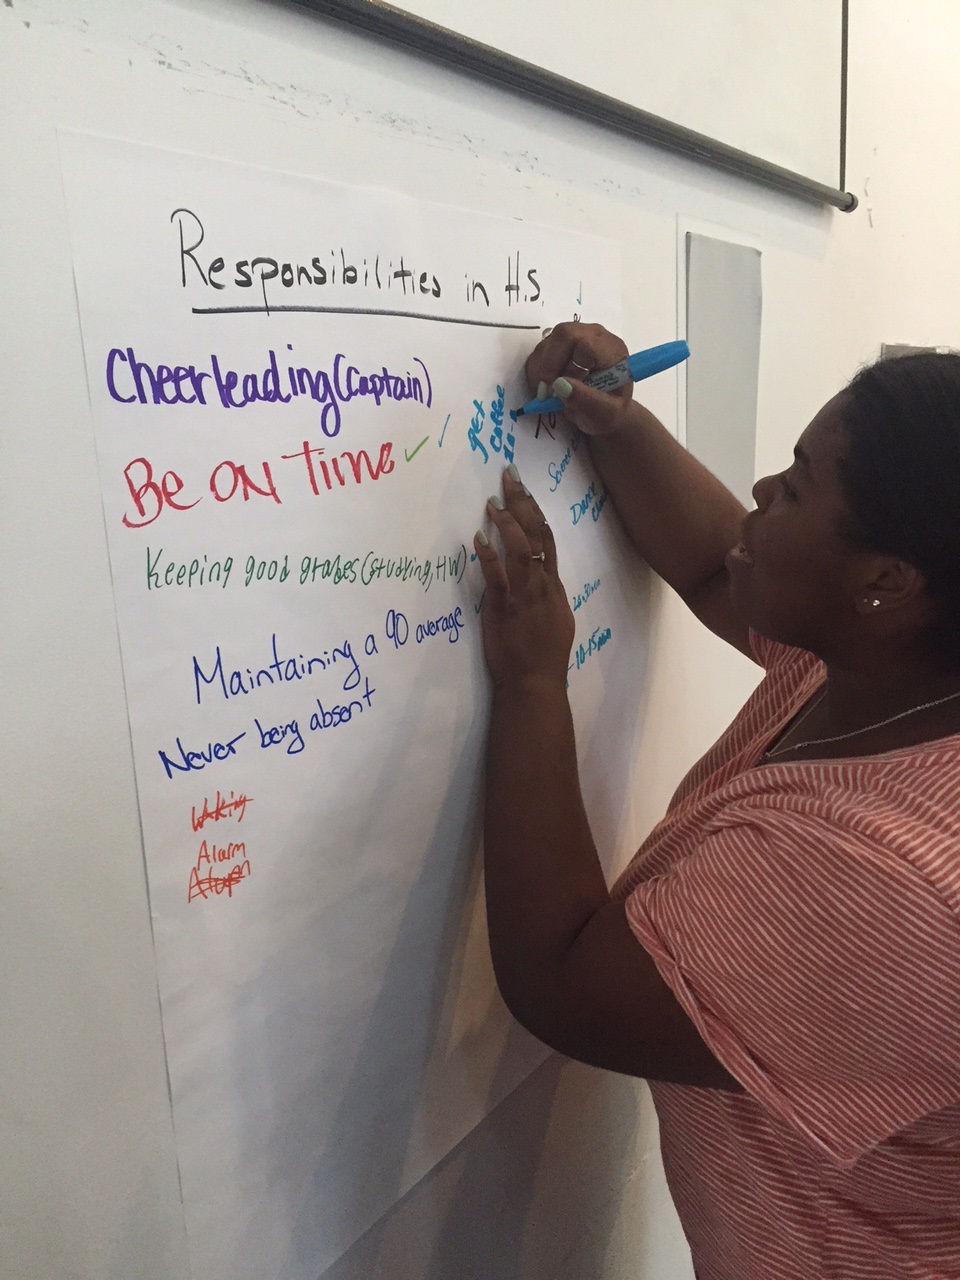 Responsibilities in H.S.
Cheerleading (Captain)
Be ON Time
Keeping good grades (studying, HW)
Maintaining a 90 average
Never being absent
Waking
Alarm
get
coffee
10-
Dance
20-30min
10-15min